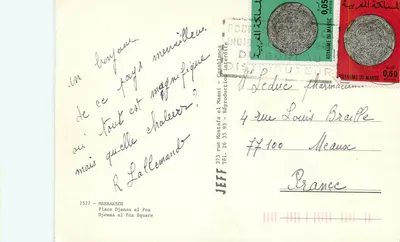 un bonjour
de ce pays merveilleux
où tout est magnifique
mais quelle chaleur !
R Lallemand
2577 - MARRAKECH
Place Djemaa el Fna
Djemaa el Fna Square
JEFF
373 rue Mostafa el Maani - Casablanca
TÉL. 26 35 93 - Réproduction interdite
المملكة المغربية
0,05
ROYAUME DU MAROC
المملكة المغربية
0,60
ROYAUME DU MAROC
Leduc pharmacien
4 rue Louis Braille
77100 Meaux
France